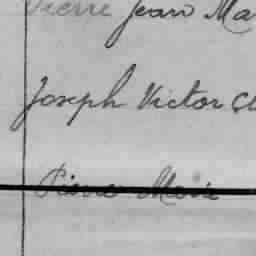 Pierre Jean Ma
Joseph Victor Cl
Pierre